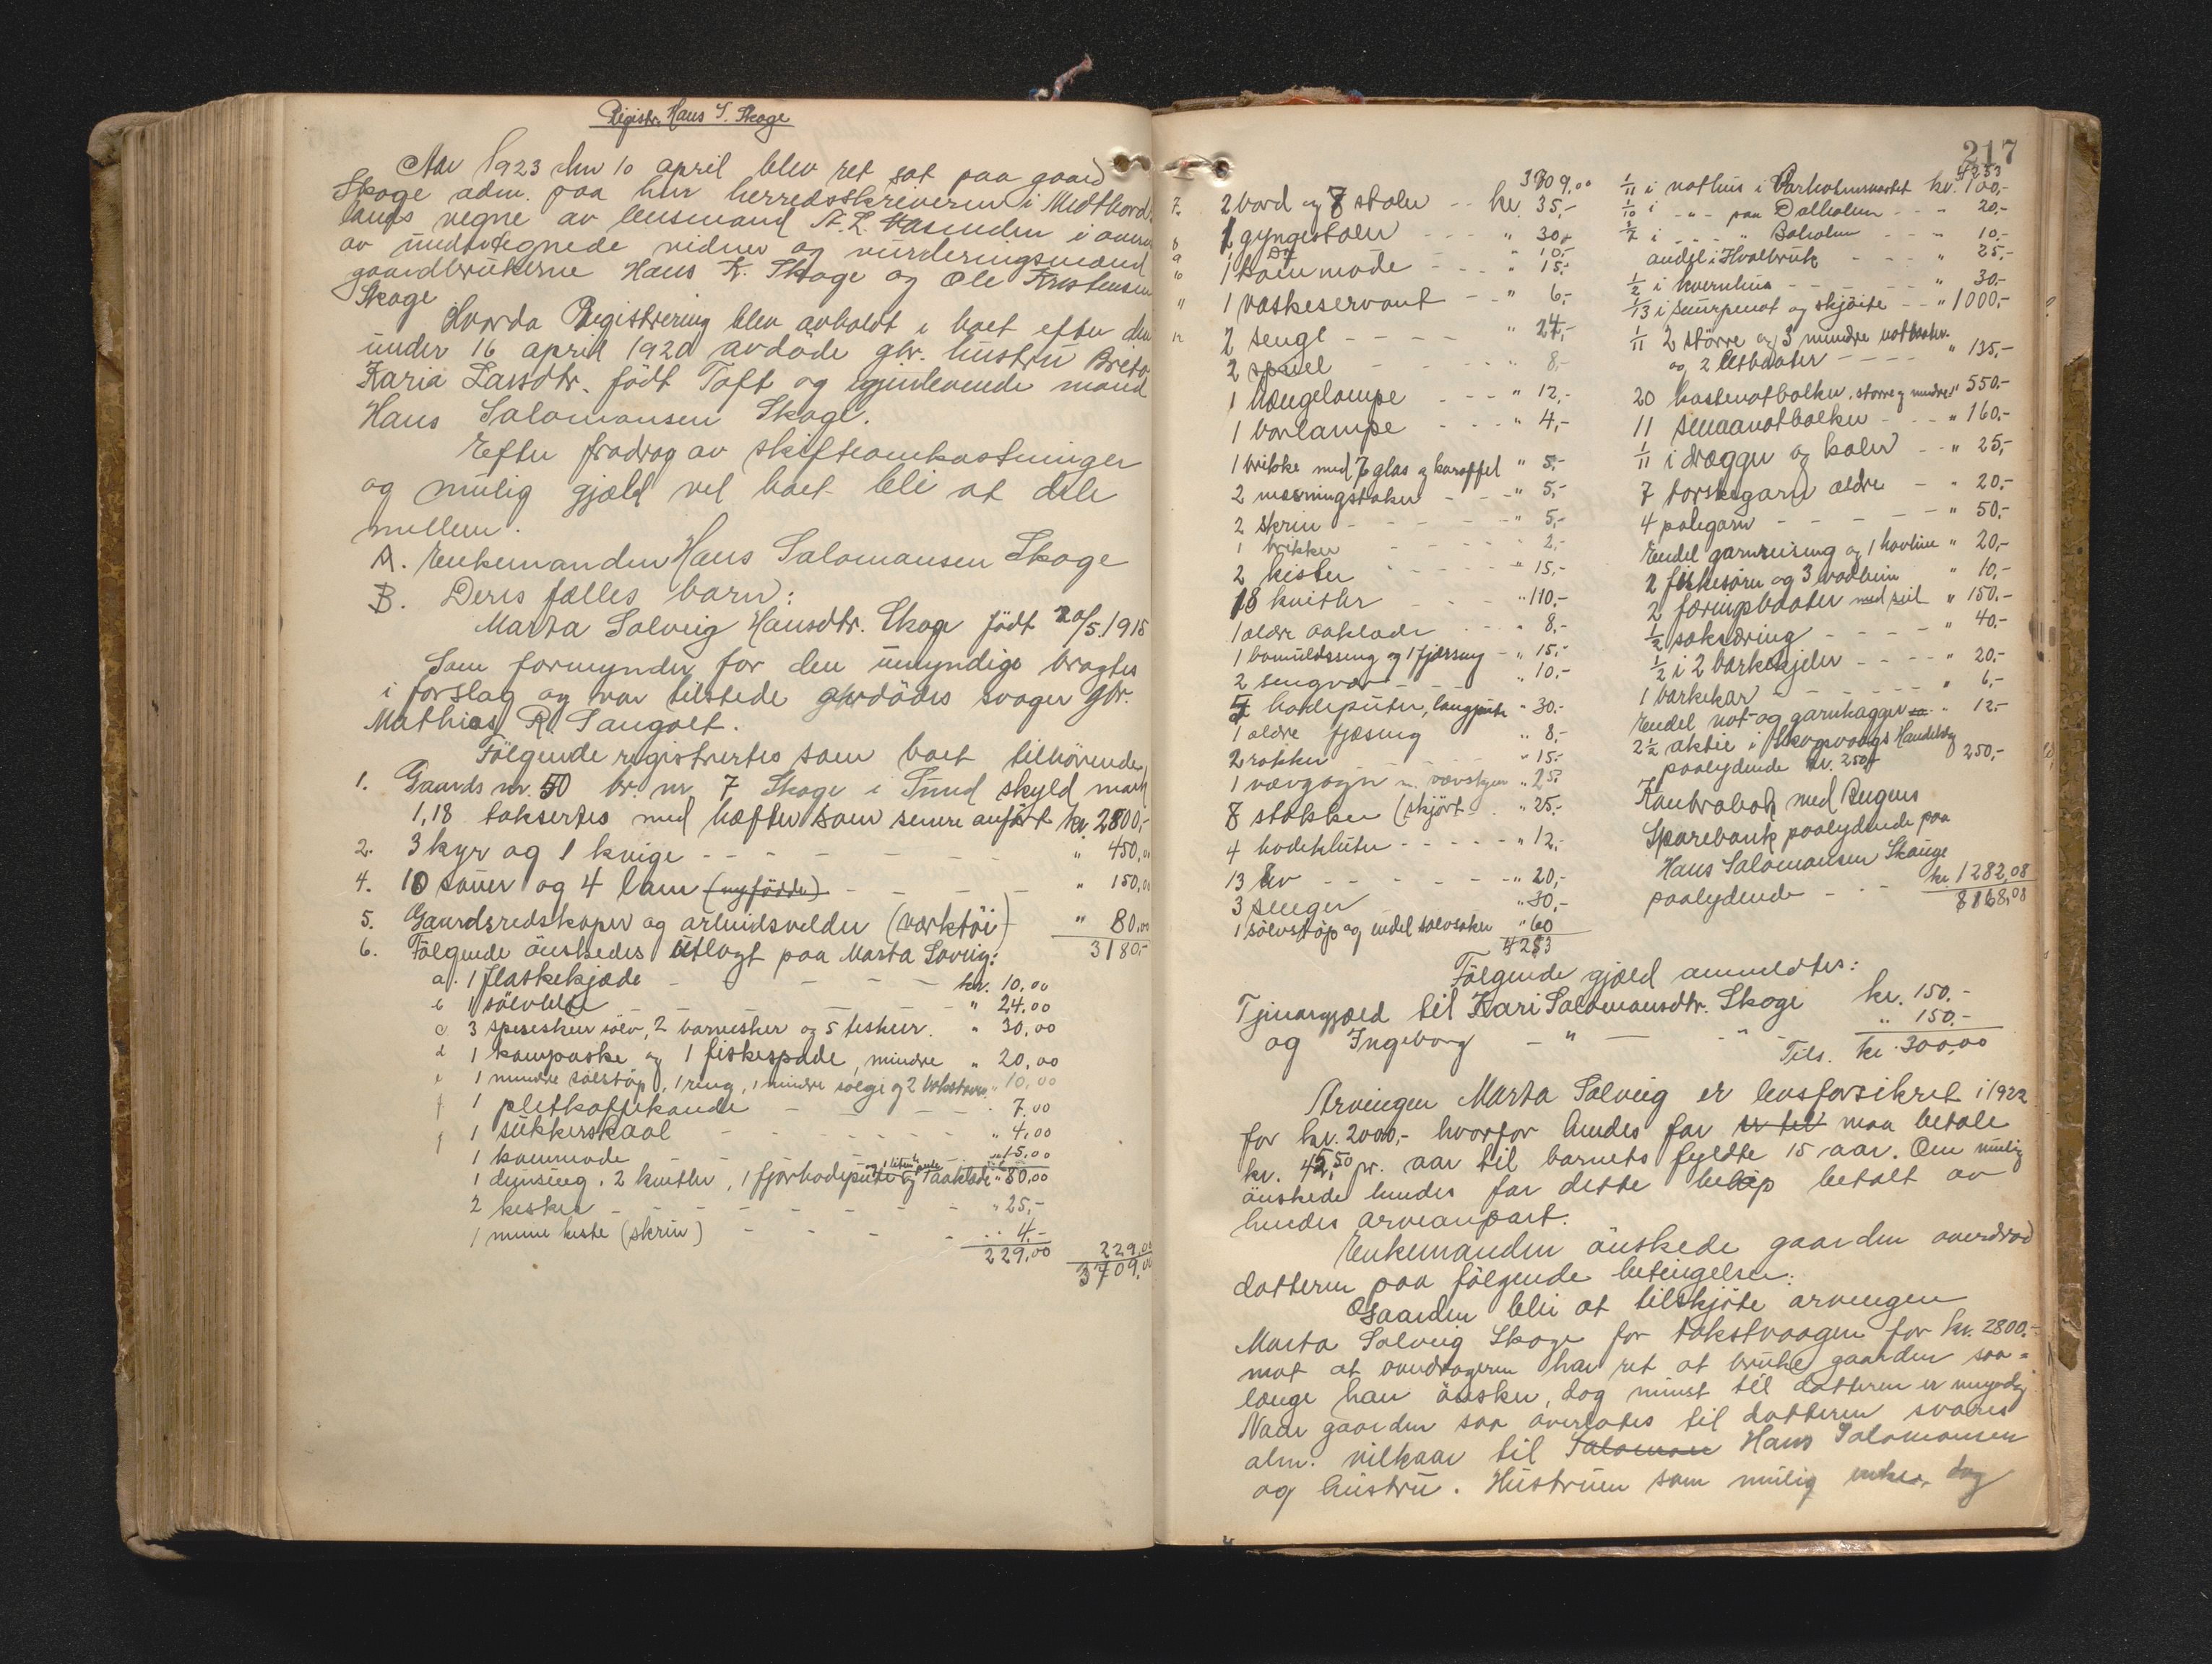 Registr. Hans S. Skage
Aar 1923 den 10 april blev ret sat paa gaard
Skoge adm. paa herr herredsskriveren i Midthord-
lands vegne av lensmand A. L. i overv
av undertegnede vidner og vurderingsmænd
gaardbrukerne Hans K. Skoge og Ole Kristensen
Skoge
Hvorda Registrering blev avholdt i boet efter den
under 16 april 1920 avdöde gbr. hustru Breta
Karia Larsdtr. födt Toft og gjenlevende mand
Hans Salomonsen Skoge.
Efter fradrag av skifteomkostninger
og mulig gjæld vil boet bli at dele
mellem.
A. Enkemanden Hans Salomonsen Skoge
B. Deres fælles barn:
Marta Solveig Hansdtr. Skoge födt 20/5 1915
Som formynder for den umyndige bragtes
i forslag og var tilstede avdödes svoger gbr.
Mathias R. Sangolt.
Fölgende registrertes som boet tilhörende,
1. Gaards nr. 50 br. nr. 7 Skoge i Sund skyld mark
1,18 taksertes med hæfter som senere anfört kr. 2800,-
2. 3 kyr og 1 kvige - - - " 450,00
4. 10 sauer og 4 lam (nyfödde) - - " 150,00
5. Gaardsredskaper og arbeidsvelder (værktöi) " 80,00
3180.-
6. Fölgende önskedes utlagt paa Marta Solveig:
a. 1 flaskekjæde - - - kr. 10,00
b 1 sölvbelte - - " 24.00
c 3 spiseskeer sölv, 2 barneskeer og 5 teskeer. " 30,00
d 1 kampaske og 1 fiskespade, mindre " 20,00
e 1 mindre sölstöp, 1 ring, 1 mindre sölgje og 2 " 10,00
f 1 pletkaffekande - - - " 7.00
g 1 sukkerskaal - - - " 4,00
1 kommode " 15.00
og 1 liten pute
1 dunseng, 2 kvitler, 1 fjörhodepute og 1 aaklæde " 80,00
2 kister - - - " 25,-
1 mine kiste (skrin) - - - " 4.-
229,00 229,00
3709,00
217
3709,00
7. 2 bord og 7 stoler - - kr. 35,-
8 2 gyngestoler - - - " 30,-
9 " 10,-
10 1 kommode - - - " 15,-
11 1 vaskeservant - - " 6,-
12 2 senge - - - - " 24,-
2 speil - - - " 8,-
1 hængelampe - - - " 12,-
1 borlampe - - - " 4,-
1 brikke med 7 glas og karaffel " 5.-
2 messingstaker - - - " 5,-
2 skrin - - - - - " 5,-
1 brikke - - - - 2,-
2 kister - - - - - " 15,-
18 kvitler - - - " 110,-
1 ældre aaklæde - - - " 8,-
1 bomuldsseng og 1 fjærseng - " 15,-
2 sengvær - - - - " 10,-
5 hodeputer, langpute " 30.-
1 ældre fjæseng " 8,-
2 rokker " 15.-
1 vævgogn m. vævskjeer " 25.-
8 stakker (skjört - - " 25.-
4 hodekluter - - - - - " 12,-
13 liv - - - - - - " 20,-
3 senger " 30,-
1 sölvstöp og endel sölvsaker " 60
4253
4253
1/11 i nothus i kr. 100,-
1/10 i - " - paa Dalholmen - - - " 20,-
1/7 i - - - " Boholmen - - - " 10,-
andel i Hvalbruk - - - " 25,-
1/2 i kvernhus - - - - " 30,-
1/13 i snurpenot og skjöite - - " 1000,-
1/11 2 större og 3 mindre notbaater.
og 2 letbaater - - - - " 135,-
20 kastenotbolker, större og mindre " 550.-
11 smaanotbolker - - - " 160,-
1/11 i drægger og kaler - - " 25,-
7 torskegarn ældre - " 20.-
4 palegarn - - - - - " 50.-
Endel garnreising og 1 havline " 20,-
2 fiskesörn og 3 vadbein " 10,-
2 færingsbaater med seil " 150.-
1/2 soksæring - - - - " 40.-
1/2 i 2 barkekjeler - - - - " 20.-
1 barkekar - - - - - - " 6,-
Endel not- og garnhagger " 12.-
2 1/2 aktie i Skogsvaags Handelslag
paalydende kr. 250,- 250,-
Kontrabok med Bergens
Sparebank paalydende paa
Hans Salomonsen Skauge
paalydende - - - kr 1282,08
8168,08
Fölgende gjæld anmeldtes:
Tjenargjæld til Kari Salomonsdtr. Skoge kr. 150.-
og Ingeborg - " - - " - " 150.-
Tils. kr. 300,00
Arvingen Marta Solveig er livsforsikret i 1922
for kr. 2000,- hvorfor hendes far er til maa betale
kr. 45,50 pr. aar til barnets fyldte 15 aar. Om mulig
önskede hendes far dette belöp betalt av
hendes arveanpart.
Enkemanden önskede gaarden overdrad
datteren paa fölgende betingelser:
Gaarden bli at tilskjöte arvingen
Marta Solveig Skoge for takstvaagen for kr. 2800.-
mot at overdrageren har ret at bruke gaarden saa=
længe han önsker, dog minst til datteren er myndig
Naar gaarden saa overlates til datteren svares
alm. vilkaar til Salomon Hans Salomonsen
og hustru. Hustruen som mulig enke, dog